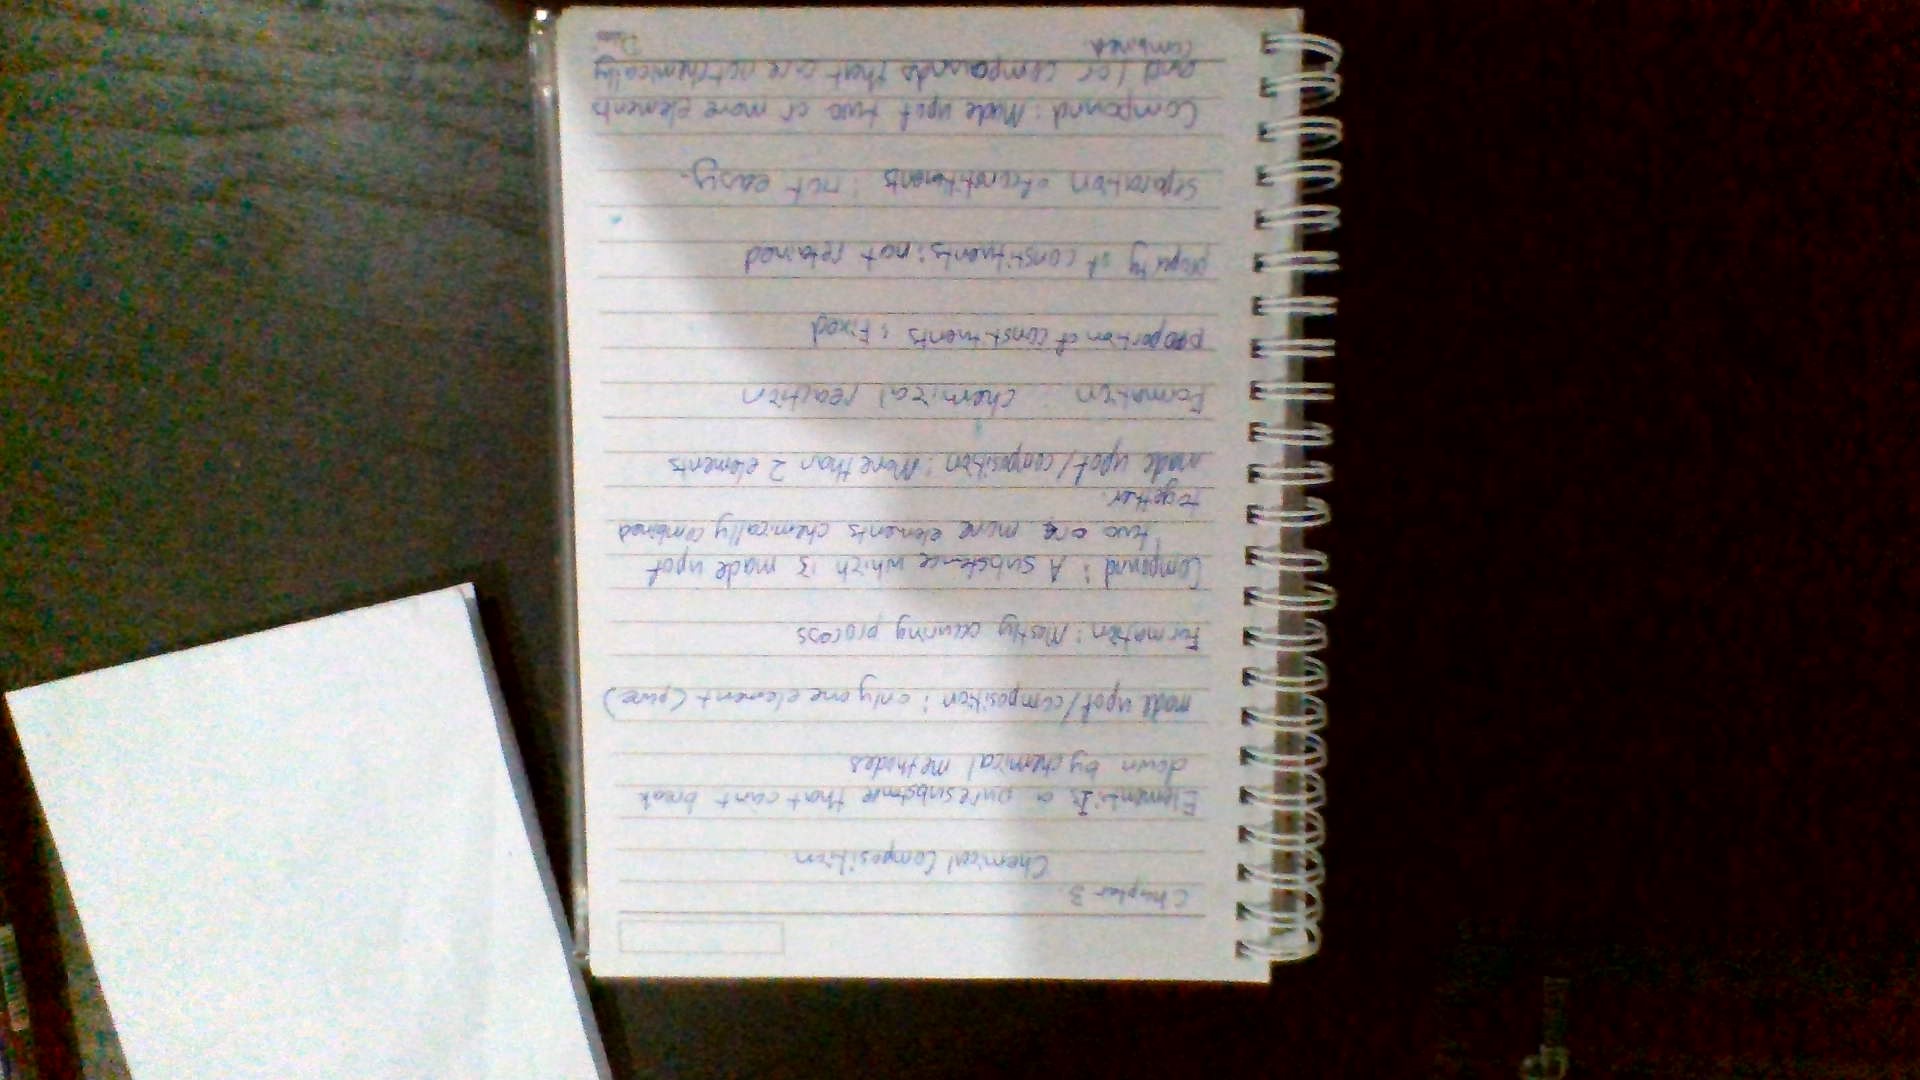 Chapter 3.
Chemical Composition
Element: Is a pure substance that can't break
down by chemical methodes
made upof/composition : only one element (pure)
Formation : Mostly occuring process
Compound : A substence which is made upof
two ore more elements chemically combined
together.
made upof/composition : More than 2 elements
Formation : chemical reaction
proportion of constituents : Fixed
property of constituents : not retained
Separation of constituents : not easy.
Compound : Made upof two or more elements
and / or compounds that are not chemically
combined.